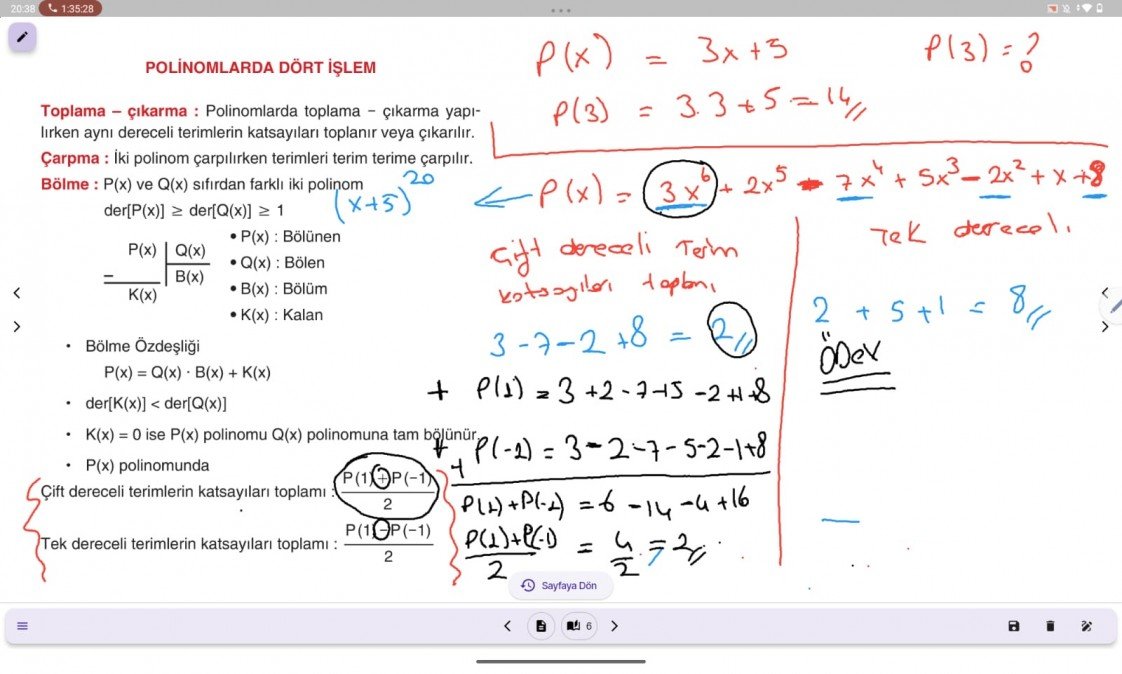 20:38 1:35:28
POLİNOMLARDA DÖRT İŞLEM
Toplama – çıkarma : Polinomlarda toplama – çıkarma yapı-
lırken aynı dereceli terimlerin katsayıları toplanır veya çıkarılır.
Çarpma : İki polinom çarpılırken terimleri terim terime çarpılır.
Bölme : P(x) ve Q(x) sıfırdan farklı iki polinom
der[P(x)] ≥ der[Q(x)] ≥ 1
(x+5)^20
P(x) Q(x)
B(x)
K(x)
• P(x) : Bölünen
• Q(x) : Bölen
• B(x) : Bölüm
• K(x) : Kalan
• Bölme Özdeşliği
P(x) = Q(x) · B(x) + K(x)
• der[K(x)] < der[Q(x)]
• K(x) = 0 ise P(x) polinomu Q(x) polinomuna tam bölünür
• P(x) polinomunda
Çift dereceli terimlerin katsayıları toplamı : P(1)+P(-1) / 2
Tek dereceli terimlerin katsayıları toplamı : P(1)-P(-1) / 2
P(x) = 3x+5 P(3) = ?
P(3) = 3.3+5=14
P(x) = 3x^6 + 2x^5 - 7x^4 + 5x^3 - 2x^2 + x + 8
Çift dereceli Terim
katsayıları toplamı
3-7-2+8 = 2
+ P(1) = 3+2-7+5-2+1+8
+ P(-1) = 3-2-7-5-2-1+8
P(1)+P(-1) = 6-14-4+16
P(1)+P(-1) / 2 = 4/2 = 2
Tek dereceli
2+5+1 = 8
ÖDEV
Sayfaya Dön
6